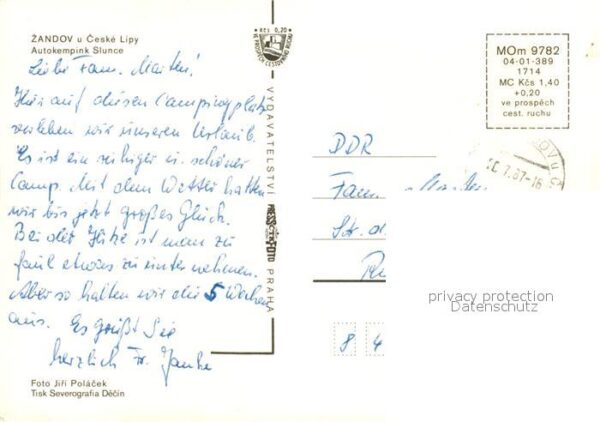 ŽANDOV u České Lípy
Autokempink Slunce
Liebe Fam. Martin!
Hier auf diesen Campingplatz
verleben wir unseren Urlaub.
Es ist ein ruhiger u. schöner
Camp. Mit dem Wetter hatten
wir bis jetzt großes Glück.
Bei der Hitze ist man zu
faul etwas zu unternehmen.
Aber so halten wir die 5 Wochen
aus. Es grüßt Sie
herzlich Fr. Janke
Foto Jiří Poláček
Tisk Severografia Děčín
Kčs 0,20
VE PROSPĚCH CESTOVNÍHO RUCHU
VYDAVATELSTVÍ
PRESSFOTO
PRAHA
MOm 9782
04-01-389
1714
MC Kčs 1,40
+0,20
ve prospěch
cest. ruchu
7.87-16
DDR
Fam.
Str. d.
8 4
privacy protection
Datenschutz